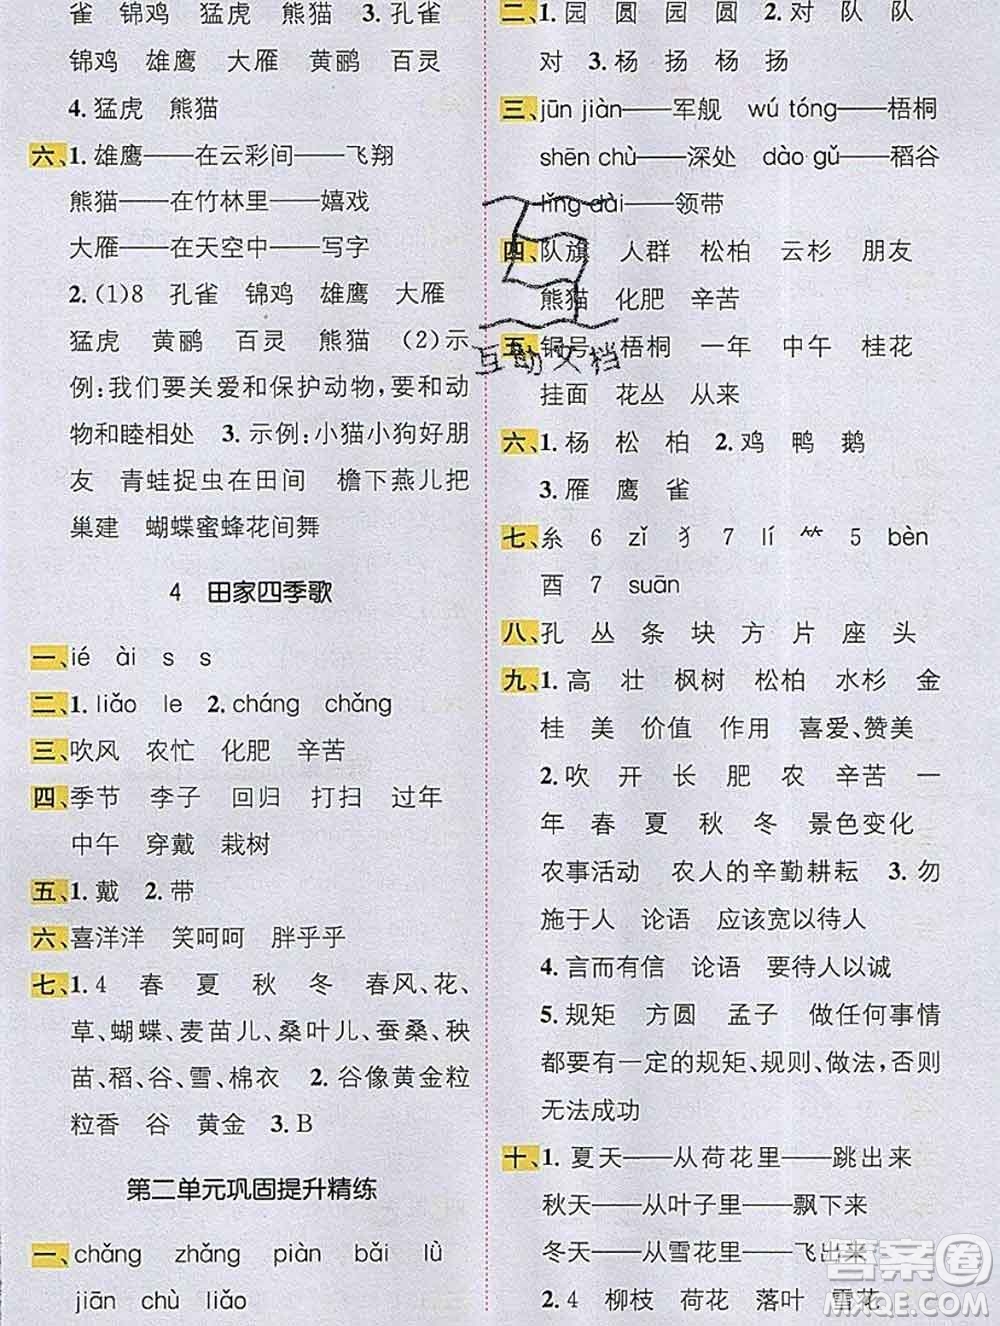 雀 锦鸡 雄鹰 猛虎 熊猫 3. 孔雀
锦鸡 雄鹰 大雁 黄鹂 百灵
4. 猛虎 熊猫
六、1. 雄鹰——在云彩间——飞翔
熊猫——在竹林里——嬉戏
大雁——在天空中——写字
2. (1)8 孔雀 锦鸡 雄鹰 大雁
猛虎 黄鹂 百灵 熊猫 (2)示
例:我们要关爱和保护动物,要和动
物和睦相处 3. 示例:小猫小狗好朋
友 青蛙捉虫在田间 檐下燕儿把
巢建 蝴蝶蜜蜂花间舞
4 田家四季歌
一、ié ài s s
二、1. liǎo le 2. cháng chǎng
三、吹风 农忙 化肥 辛苦
四、季节 李子 回归 打扫 过年
中午 穿戴 栽树
五、1. 戴 2. 带
六、喜洋洋 笑呵呵 胖乎乎
七、1. 4 春 夏 秋 冬 春风、花、
草、蝴蝶、麦苗儿、桑叶儿、蚕桑、秧
苗、稻、谷、雪、棉衣 2. 谷像黄金粒
粒香 谷 黄金 3. B
第二单元巩固提升精练
一、chǎng zhǎng piàn bǎi lǜ
jiān chù liǎo
二、1. 园 圆 园 圆 2. 对 队 队
对 3. 杨 扬 杨 扬
三、jūn jiàn——军舰 wú tóng——梧桐
shēn chù——深处 dào gǔ——稻谷
lǐng dài——领带
四、队旗 人群 松柏 云杉 朋友
熊猫 化肥 辛苦
五、铜号 梧桐 一年 中午 桂花
挂面 花丛 从来
六、1. 杨 松 柏 2. 鸡 鸭 鹅
3. 雁 鹰 雀
七、糹 6 zǐ 犭 7 lí ⺮ 5 bèn
酉 7 suān
八、孔 丛 条 块 方 片 座 头
九、1. 高 壮 枫树 松柏 水杉 金
桂 美 价值 作用 喜爱、赞美
2. 吹 开 长 肥 农 辛苦 一
年 春 夏 秋 冬 景色变化
农事活动 农人的辛勤耕耘 3. 勿
施于人 论语 应该宽以待人
4. 言而有信 论语 要待人以诚
5. 规矩 方圆 孟子 做任何事情
都要有一定的规矩、规则、做法,否则
无法成功
十、1. 夏天——从荷花里——跳出来
秋天——从叶子里——摇出来
冬天——从雪花里——飞出来
2. 4 柳枝 荷花 落叶 雪花
互助文档
答案圈
MXQE.COM